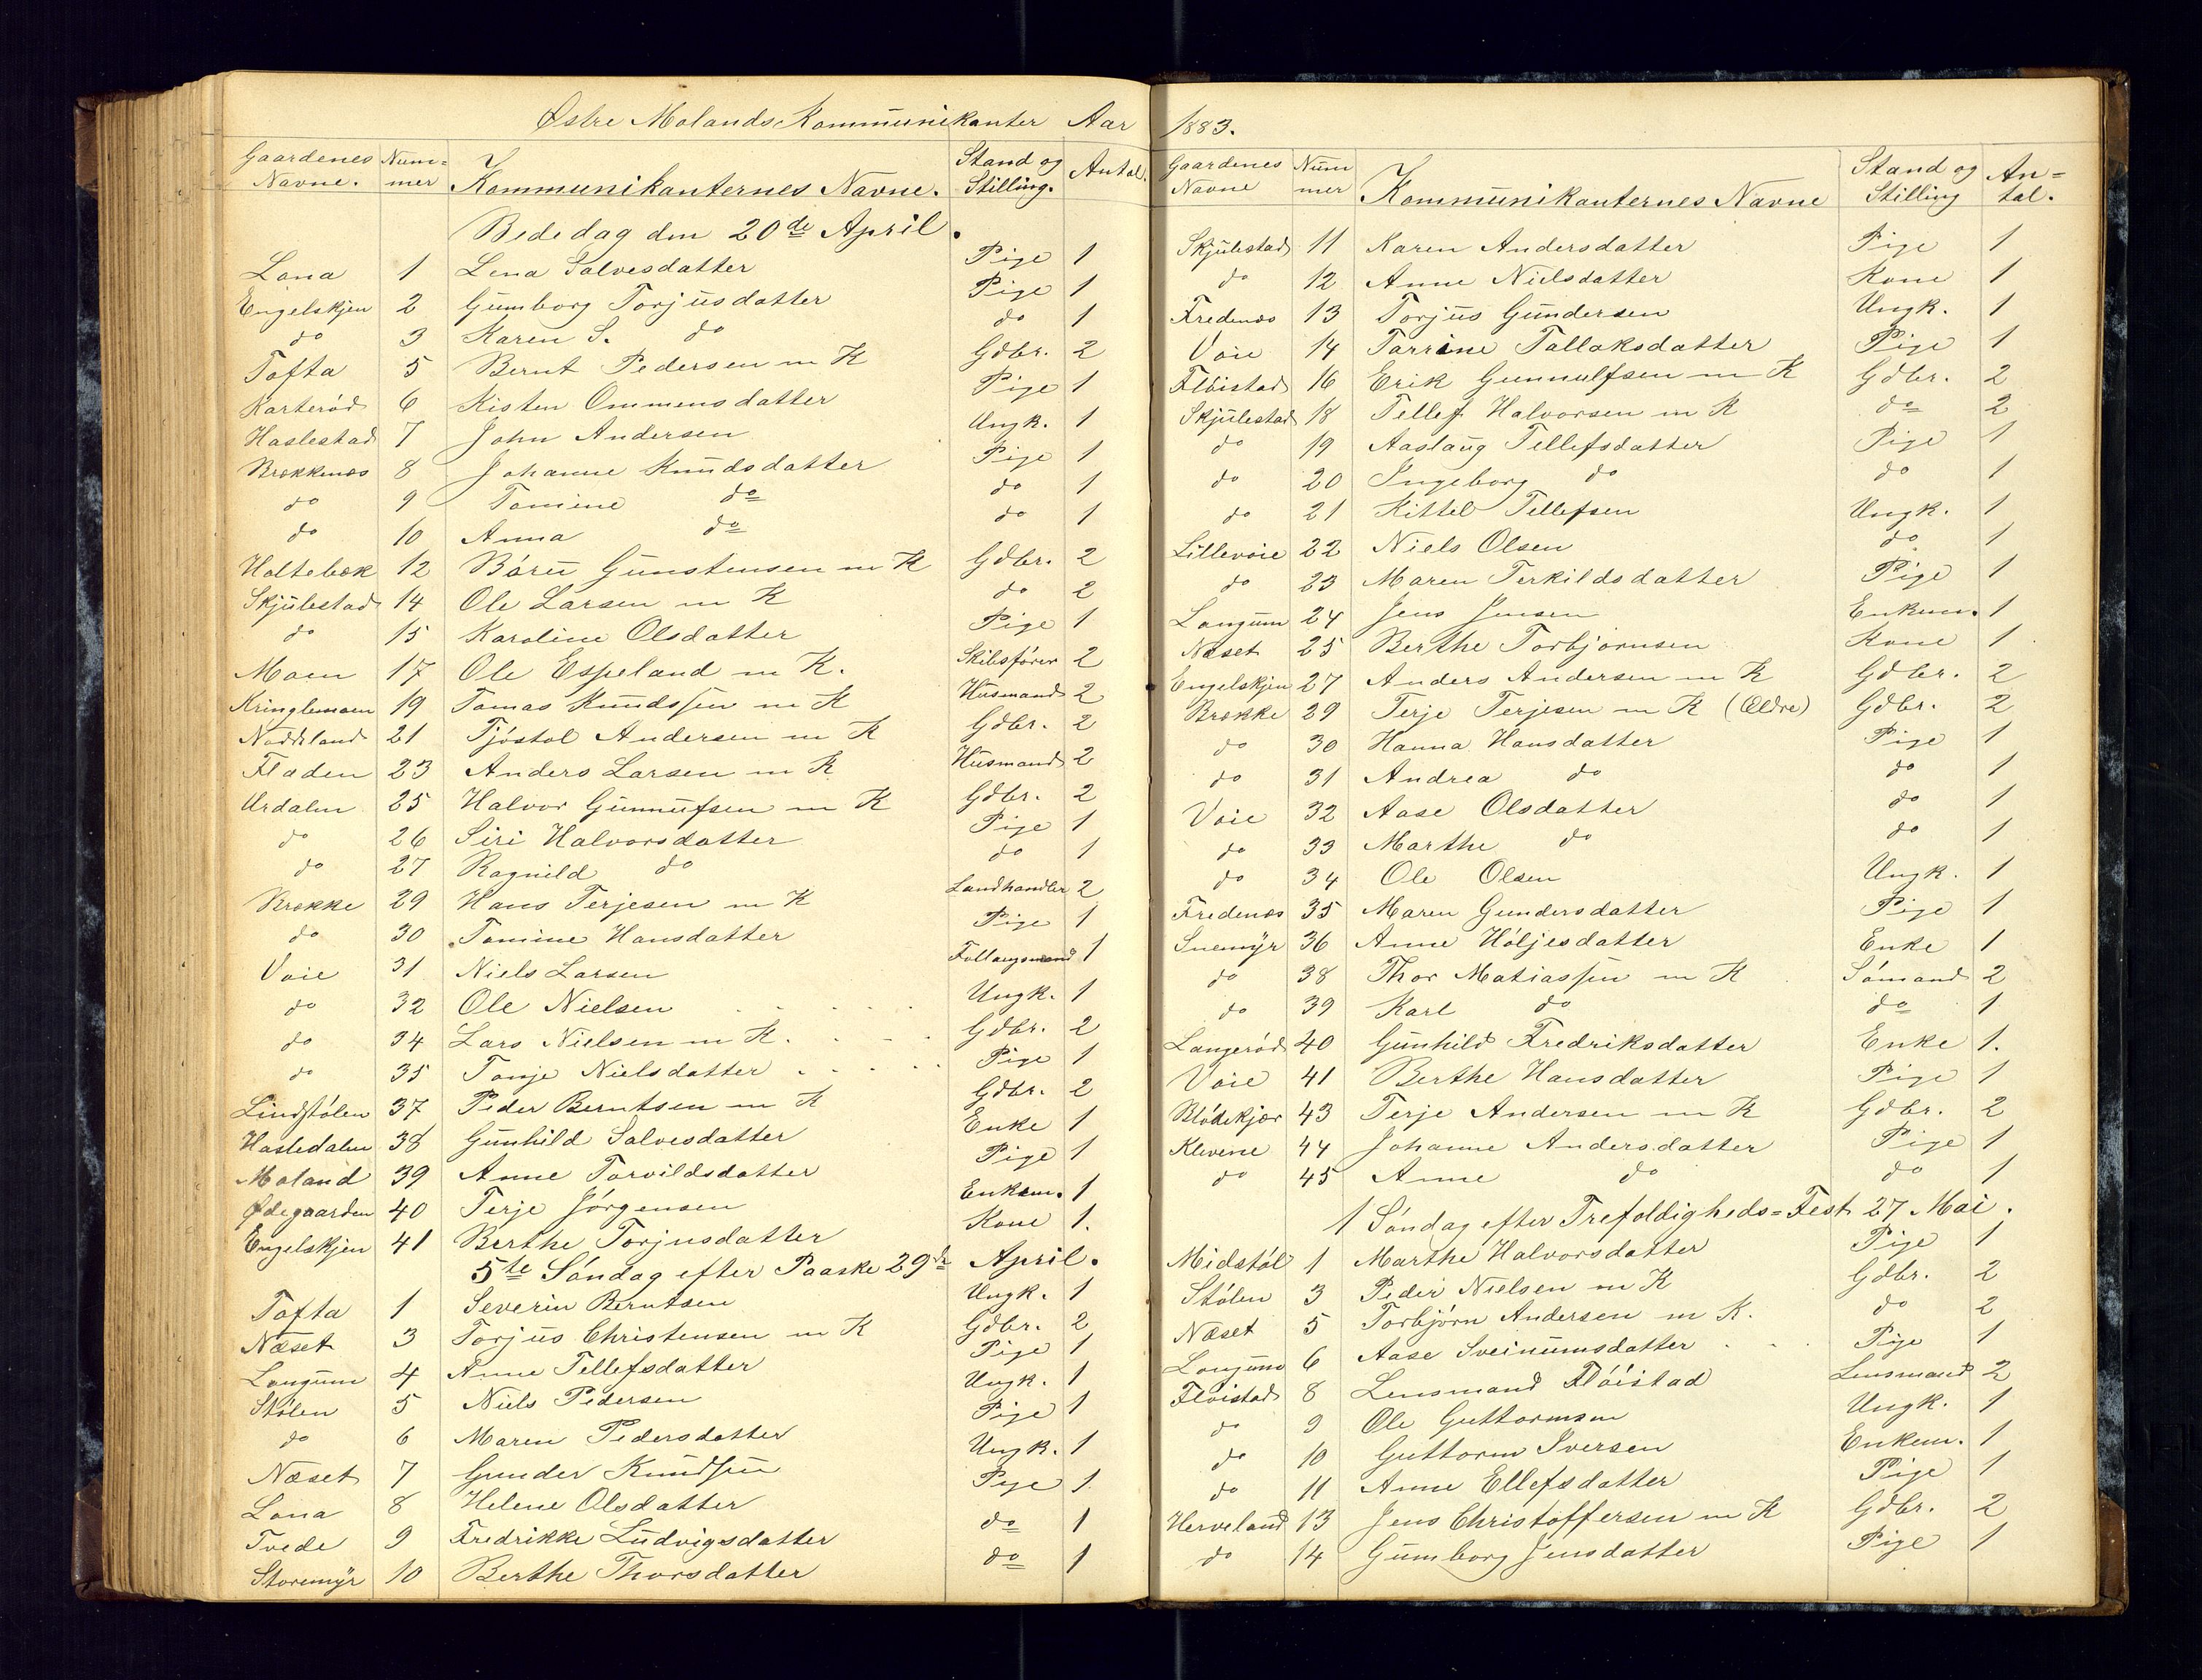 Østre Molands Kommunikanter Aar 1883.
Gaardenes Navne. Nummer Kommunikanternes Navne. Stand og Stilling. Antal.
Bededag den 20de April.
Lona 1 Lena Salvesdatter Pige 1
Engelskjen 2 Gumborg Torjusdatter Pige 1
do 3 Karen S. do do 1
Tofta 5 Bernt Pedersen m K Gdbr. 2
Karterød 6 Kisten Ommensdatter Pige 1
Haslestad 7 John Andersen Ungk. 1
Brekkenes 8 Johanne Knudsdatter Pige 1
do 9 Tomine do do 1
do 10 Anna do do 1
Holtebæk 12 Båru Gunstensen m K Gdbr. 2
Skjulestad 14 Ole Larsen m K do 2
do 15 Karoline Olsdatter Pige 1
Moen 17 Ole Espeland m K. Skibsfører 2
Kringlemoen 19 Tomas Knudssen m K Husmand 2
Noddeland 21 Tjóstol Andersen m K Gdbr. 2
Fladen 23 Anders Larsen m K Husmand 2
Urdalen 25 Halvor Gunnufsen m K Gdbr. 2
do 26 Siri Halvorsdatter Pige 1
do 27 Ragnild do do 1
Brække 29 Hans Terjesen m K Landhandler 2
do 30 Tomine Hansdatter Pige 1
Voie 31 Niels Larsen Follaugsmand 1
do 32 Ole Nielsen Ungk. 1
do 34 Lars Nielsen m K. Gdbr. 2
do 35 Tonje Nielsdatter Pige 1
Lindstólen 37 Peder Berntsen m K Gdbr. 2
Hasledalen 38 Gunhild Salvesdatter Enke 1
Moland 39 Anne Torvildsdatter Pige 1
Ødegaarden 40 Terje Jórgensen Enkem. 1
Engelskjen 41 Berthe Torjusdatter Kone 1.
5te Sóndag efter Paaske 29de April.
Tofta 1 Severin Berntsen Ungk. 1
Næset 3 Torjus Christensen m K Gdbr. 2
Longum 4 Anne Tellefsdatter Pige 1
Stólen 5 Niels Pedersen Ungk. 1
do 6 Maren Pedersdatter Pige 1
Næset 7 Gunder Knudsen Ungk. 1
Lona 8 Helene Olsdatter Pige 1
Tvede 9 Fredrikke Ludvigsdatter do 1
Storemyr 10 Berthe Thorsdatter do 1
Gaardenes Navne Nummer Kommunikanternes Navne Stand og Stilling An=tal.
Skjulestad 11 Karen Andersdatter Pige 1
do 12 Anne Nielsdatter Kone 1
Fredenes 13 Torjus Gundersen Ungk. 1
Voie 14 Torrine Talloksdatter Pige 1
Flóistad 16 Erik Gunnulfsen m K Gdbr. 2
Skjulestad 18 Tellef Halvorsen m K do 2
do 19 Aaslaug Tellefsdatter Pige 1
do 20 Ingeborg do do 1
do 21 Kittel Tellefsen Ungk. 1
Lillevoie 22 Niels Olsen do 1
do 23 Maren Terkildsdatter Pige 1
Longum 24 Jens Jensen Enkem. 1
Næset 25 Berthe Torbjornsen Kone 1
Engelskjen 27 Anders Andersen m K Gdbr. 2
Brække 29 Terje Terjesen m K (Ældre) Gdbr. 2
do 30 Hanna Hansdatter Pige 1
do 31 Andrea do do 1
Voie 32 Aase Olsdatter do 1
do 33 Marthe do do 1
do 34 Ole Olsen Ungk. 1
Fredenes 35 Maren Gundersdatter Pige 1
Snemyr 36 Anne Hóljesdatter Enke 1
do 38 Thor Matiassen m K Sómand 2
do 39 Karl do do 1
Langerød 40 Gunhild Fredriksdatter Enke 1.
Voie 41 Berthe Hansdatter Pige 1
Blódekjær 43 Terje Andersen m K Gdbr. 2
Klevene 44 Johanne Andersdatter Pige 1
do 45 Anne do do 1
1 Sóndag efter Trefoldigheds=Fest 27 Mai.
Midstól 1 Marthe Halvorsdatter Pige 1
Stólen 3 Peder Nielsen m K Gdbr. 2
Næset 5 Torbjórn Andersen m K. do 2
Longum 6 Aase Sveinumsdatter Pige 1
Flóistad 8 Lensmand Flóistad Lensmand 2
do 9 Ole Guttormsen Ungk. 1
do 10 Guttorm Iversen Enkem. 1
do 11 Anne Ellefsdatter Pige 1
Herveland 13 Jens Christoffersen m K Gdbr. 2
do 14 Gumborg Jensdatter Pige 1